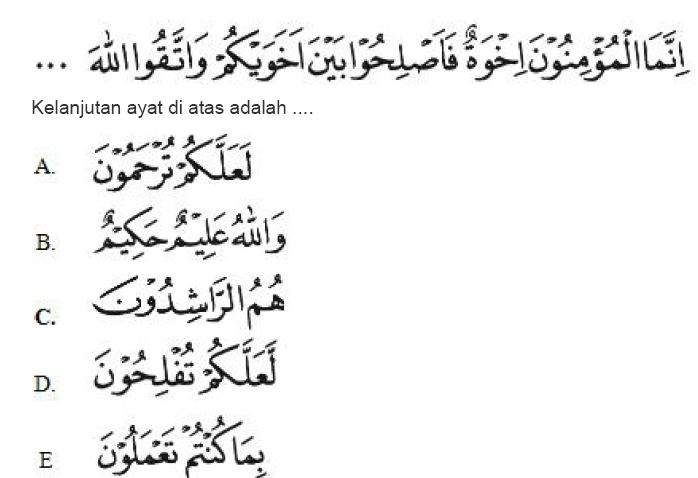 اِنَّمَا الْمُؤْمِنُوْنَ اِخْوَةٌ فَاَصْلِحُوْا بَيْنَ اَخَوَيْكُمْ وَاتَّقُوا اللّٰهَ ...
Kelanjutan ayat di atas adalah ....
A. لَعَلَّكُمْ تُرْحَمُوْنَ
B. وَاللّٰهُ عَلِيْمٌ حَكِيْمٌ
C. هُمُ الرَّاشِدُوْنَ
D. لَّعَلَّكُمْ تُفْلِحُوْنَ
E بِمَا كُنْتُمْ تَعْمَلُوْنَ